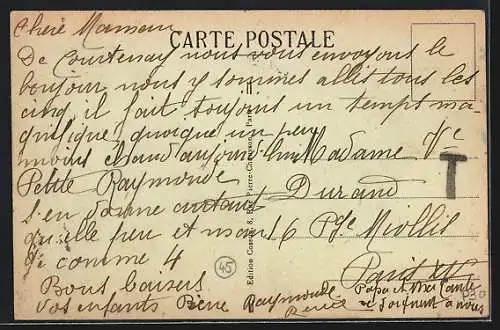 Chère Maman
CARTE POSTALE
De Courtenay nous vous envoyons le
bonjour nous y sommes allés tous les
cinq, il fait toujours un temps ma-
gnifique quoique un peu
moins chaud aujourd'hui
Petite Raymonde
s'en donne autant
qu'elle peu et mon
comme 4
Bons baisers
vos enfants Pierre Raymonde
René
Madame Vve
Durand
16 Pge Miollis
Paris XVe
Papa et
se joignent à nous
T
45
Edition